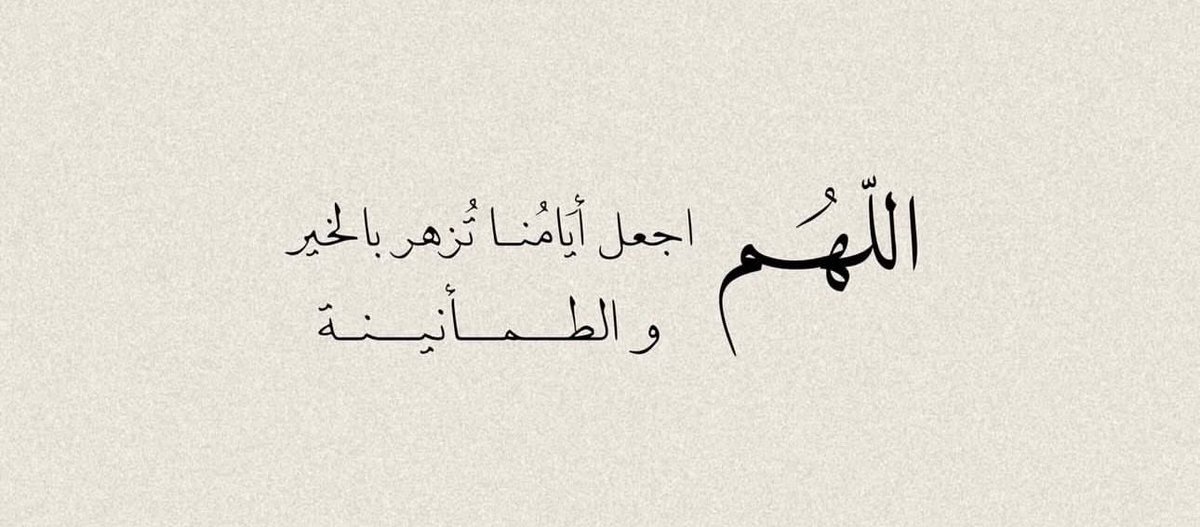 اللّهُم اجعل أيَامُنا تُزهر بالخير
و الطمأنينة